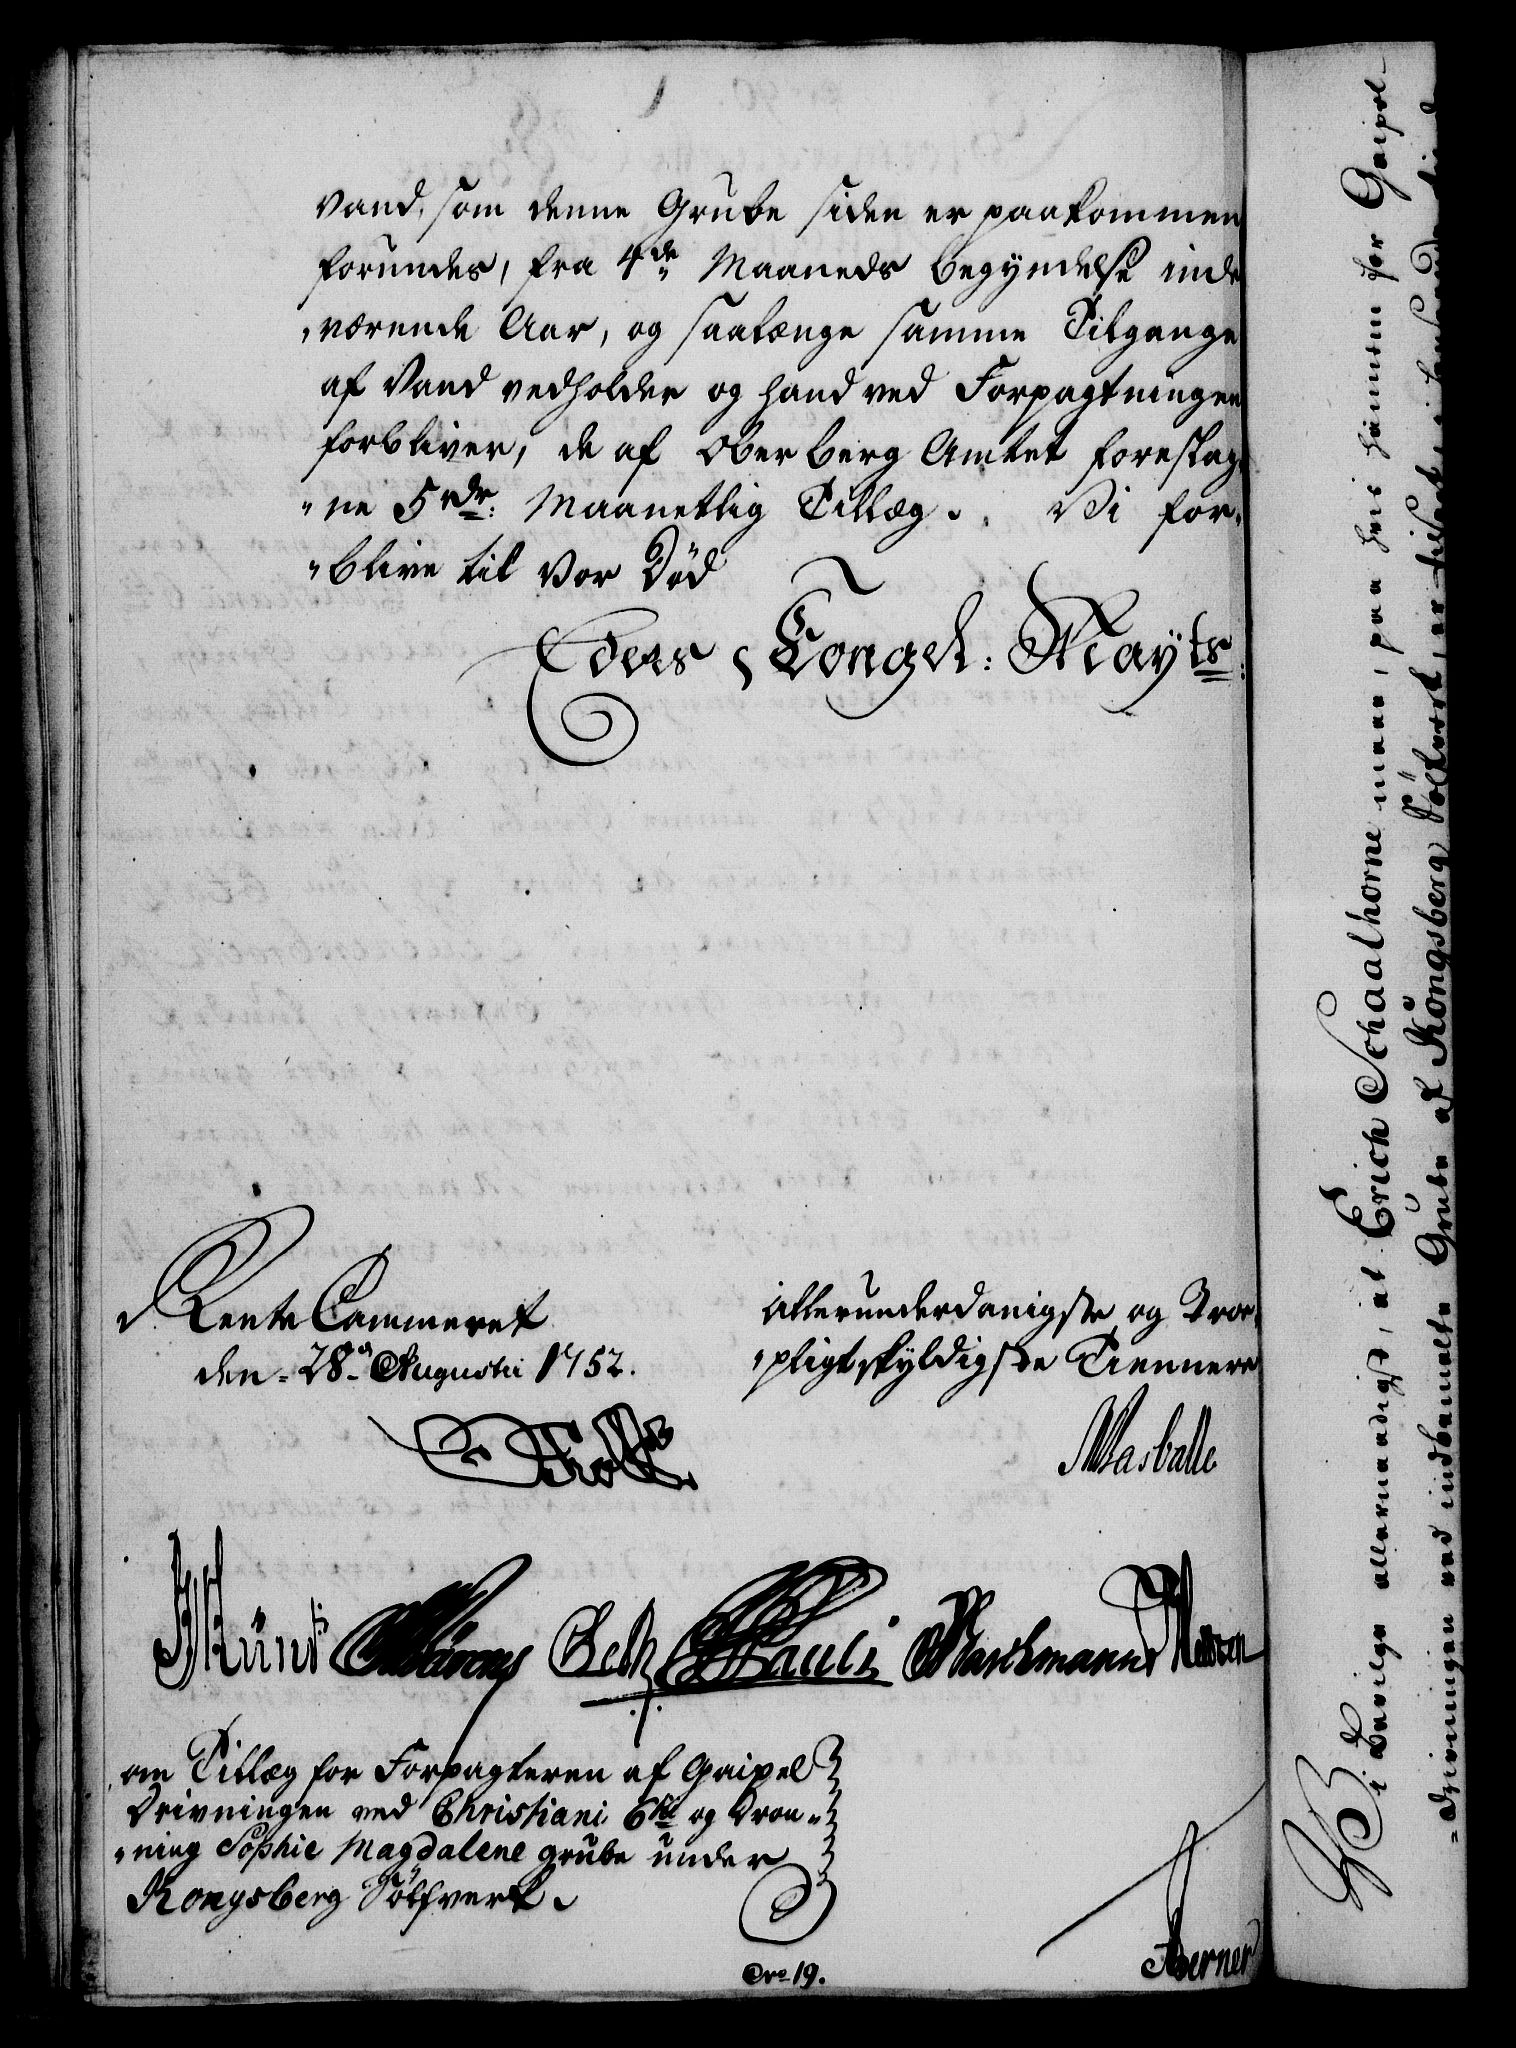 Vand, som denne Grube siden er paakommen
forundes, fra 4de Maaneds begyndelse inde
værende Aar, og saalænge samme Tilgange
af Vand vedholder og hand ved Forpagtningen
forbliver, de af Ober Berg Amtet foreslag-
"ne 5 rdr: Maanetlig Tillæg. Vi for-
"blive til Vor Død
Eders Kongel: Mayts:
Rente Cammeret
den 28de Augustii 1752.
allerunderdanigste og Troe
"pligtskyldigste Tiennere
Pauli
om Tillæg for Forpagteren af Gaipel
Drivningen ved Christiani 6ti og Dron-
"ning Sophie Magdalene grube under
Kongsberg Sölfverk.
Nro 19.
Berner
Vi bevilge allernaadigst, at Erich Schaalhorne maae, paa hvis hannem for Gaipel-
"Drivningen ved indbemelte Grube af Kongsberg Sölfverk, er tilsagt i